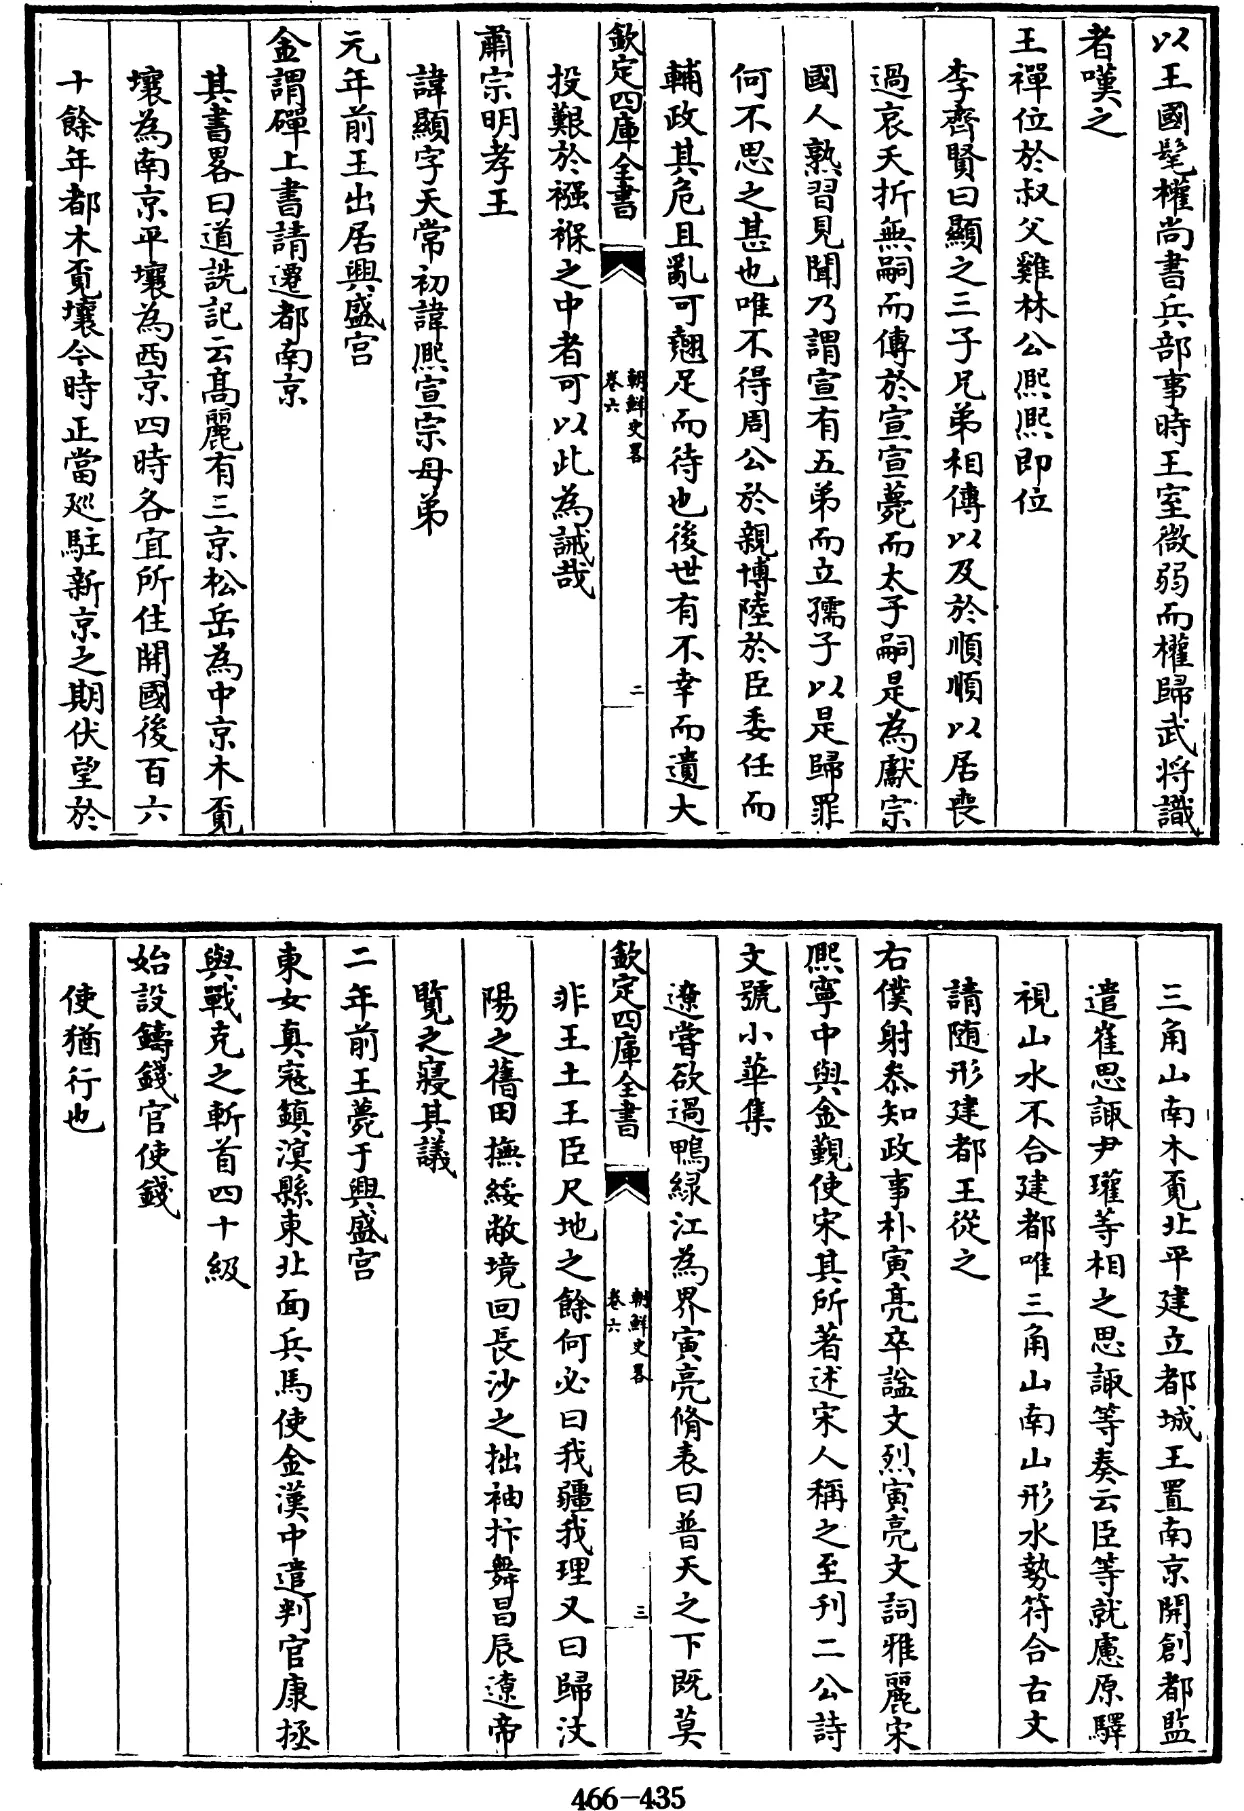 以王國髦權尚書兵部事時王室微弱而權歸武将識
者嘆之
王禪位於叔父雞林公熈熈即位
李齊賢曰顯之三子兄弟相傳以及於順順以居喪
過哀夭折無嗣而傳於宣宣薨而太子嗣是為獻宗
國人熟習見聞乃謂宣有五弟而立孺子以是歸罪
何不思之甚也唯不得周公於親博陸於臣委任而
輔政其危且亂可翹足而待也後世有不幸而遺大
欽定四庫全書
朝鮮史畧
卷六
二
投艱於襁褓之中者可以此為誡哉
肅宗明孝王
諱顯字天常初諱熈宣宗母弟
元年前王出居興盛宫
金謂磾上書請遷都南京
其書畧曰道詵記云髙麗有三京松岳為中京木覓
壤為南京平壤為西京四時各宜所住開國後百六
十餘年都木覓壤今時正當廵駐新京之期伏望於
三角山南木覓北平建立都城王置南京開創都監
遣崔思諏尹瓘等相之思諏等奏云臣等就慮原驛
視山水不合建都唯三角山南山形水勢符合古文
請随形建都王從之
右僕射叅知政事朴寅亮卒諡文烈寅亮文詞雅麗宋
熈寧中與金覲使宋其所著述宋人稱之至刋二公詩
文號小華集
遼嘗欲過鴨緑江為界寅亮脩表曰普天之下既莫
欽定四庫全書
朝鮮史畧
卷六
三
非王土王臣尺地之餘何必曰我疆我理又曰歸汶
陽之舊田撫綏敝境回長沙之拙袖抃舞昌辰遼帝
覧之寢其議
二年前王薨于興盛宫
東女真寇鎮溟縣東北面兵馬使金漢中遣判官康拯
與戰克之斬首四十級
始設鑄錢官使錢
使猶行也
466-435